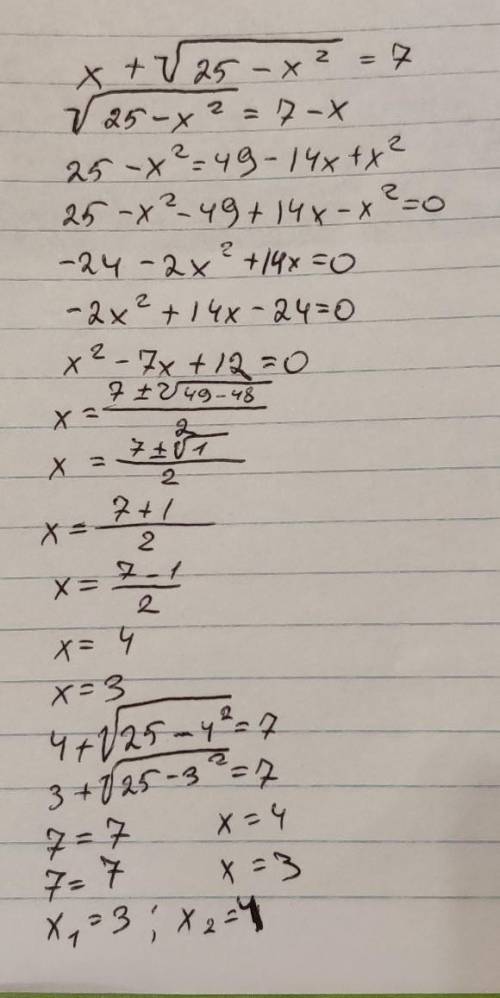 x + √25 - x² = 7
√25 - x² = 7 - x
25 - x² = 49 - 14x + x²
25 - x² - 49 + 14x - x² = 0
-24 - 2x² + 14x = 0
-2x² + 14x - 24 = 0
x² - 7x + 12 = 0
x = (7 ± √49 - 48) / 2
x = (7 ± √1) / 2
x = (7 + 1) / 2
x = (7 - 1) / 2
x = 4
x = 3
4 + √25 - 4² = 7
3 + √25 - 3² = 7
7 = 7 x = 4
7 = 7 x = 3
x₁ = 3 ; x₂ = 4